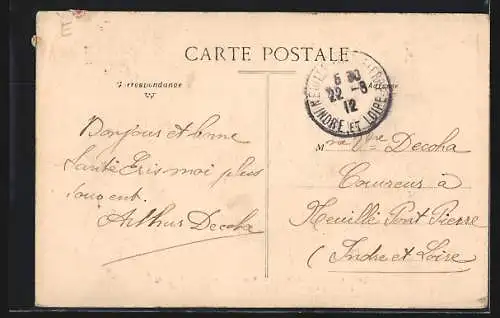 E
CARTE POSTALE
Correspondance
Adresse
NEUILLÉ-PONT-PIERRE
6 30
22 -8
12
INDRE ET LOIRE
Bonjour et bonne
Santé Ecris moi plus
souvent.
Arthur Decoha
Mme Vve Decoha
Couvreur à
Neuillé Pont Pierre
(Indre et Loire